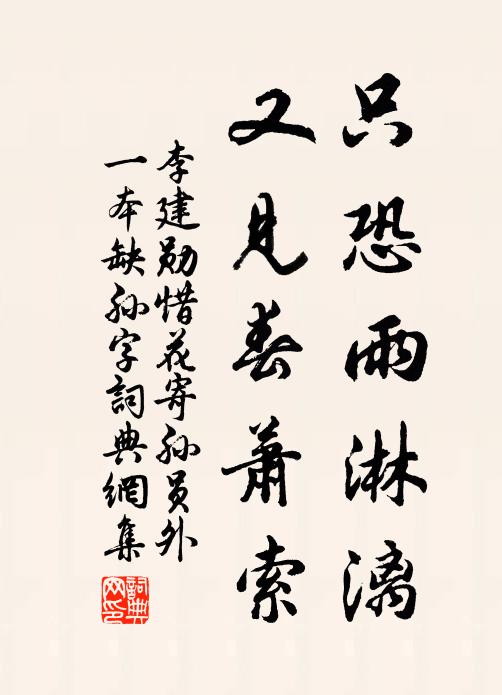 只恐雨淋漓
又見春蕭索
李建勛惜花寄孫員外
一本缺孫字詞典網集
詞典網印